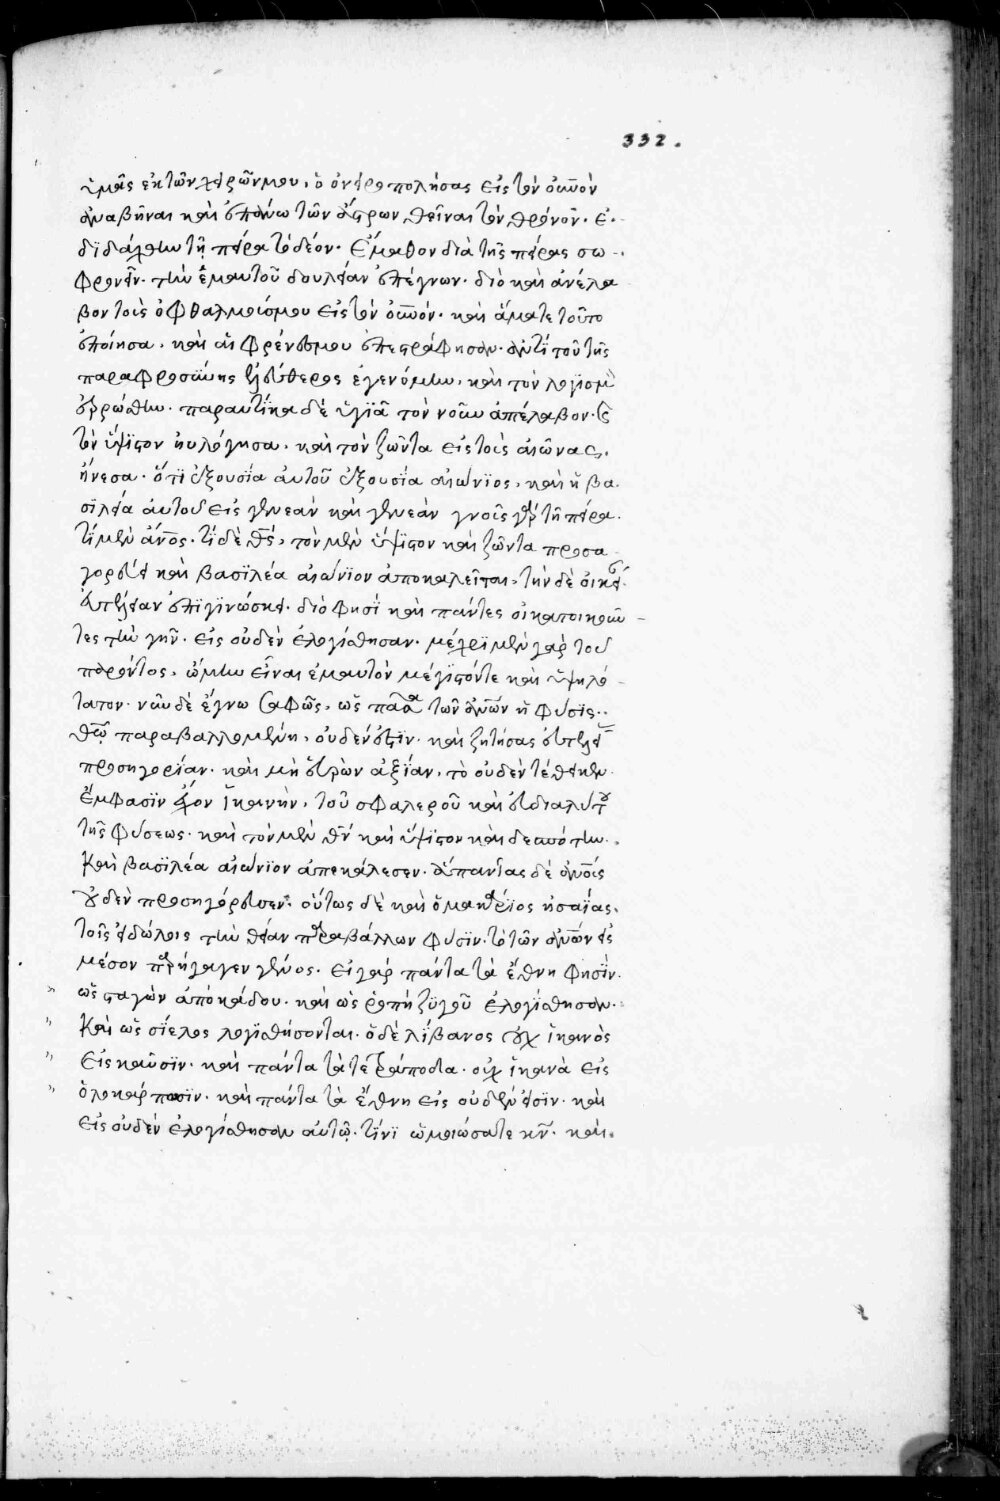 332.
ὑμᾶς ἐκ τῶν χειρῶν μου, ὁ ὀνειροπολήσας εἰς τὸν οὐνὸν
ἀναβῆναι καὶ ἐπάνω τῶν ἄστρων θεῖναι τὸν θρόνον· ἐ-
διδάχθην τῇ πείρα τὸ δέον· ἔμαθον διὰ τῆς πείρας σω-
φρονεῖν· τὴν ἐμαυτοῦ δουλείαν ἐπέγνων· διὸ καὶ ἀνέλα
βον τοὺς ὀφθαλμούς μου εἰς τὸν οὐνόν· καὶ ἅμα τε τοῦτο
ἐποίησα· καὶ αἱ φρένες μου ἐπεστράφησαν· ἀντὶ τοῦ τῆς
παραφροσύνης ἐλεύθερος ἐγενόμην, καὶ τὸν λογισμὸν
ἐρρώσθην· παραυτίκα δὲ ὑγιᾶ τὸν νοῦν ἀπέλαβον· καὶ
τὸν ὕψιστον ηὐλόγησα· καὶ τὸν ζῶντα εἰς τοὺς αἰῶνας,
ᾔνεσα· ὅτι ἐξουσία αὐτοῦ ἐξουσία αἰώνιος, καὶ ἡ βα
σιλεία αὐτοῦ εἰς γενεὰν καὶ γενεὰν γνοὺς γὰρ τῇ πείρα·
τί μὲν ἄνος· τί δὲ θς, τὸν μὲν ὕψιστον καὶ ζῶντα προσα
γορεύει καὶ βασιλέα αἰώνιον ἀποκαλεῖται, τὴν δὲ οἰκείαν
εὐτέλειαν ἐπιγινώσκει· διό φησι καὶ πάντες οἱ κατοικοῦν
τες τὴν γῆν· εἰς οὐδὲν ἐλογίσθησαν· μέχρι μὲν γὰρ τοῦ
παρόντος, ᾤμην εἶναι ἐμαυτὸν μέγιστόν τε καὶ ὑψηλό
τατον· νῦν δὲ ἔγνω σαφῶς, ὡς πᾶσα τῶν ἀνῶν ἡ φύσις·
θῶ παραβαλλομένη, οὐδέν ἐστιν· καὶ ζητήσας εὐτελῆ
προσηγορίαν· καὶ μὴ εὑρὼν ἀξίαν, τὸ οὐδὲν τέθεικεν
ἔμφασιν φέρον ἱκανὴν, τοῦ σφαλεροῦ καὶ εὐδιαλύτου
τῆς φύσεως· καὶ τὸν μὲν θν καὶ ὕψιστον καὶ δεσπότην
καὶ βασιλέα αἰώνιον ἀπεκάλεσεν· ἅπαντας δὲ ἀνους
οὐδὲν προσηγόρευσεν· οὕτως δὲ καὶ ὁ μακάριος ἡσαΐας,
τοῖς εἰδώλοις τὴν θείαν παραβάλλων φύσιν· τὸ τῶν ἀνῶν εἰς
μέσον παρήγαγεν γένος· εἰ γὰρ πάντα τὰ ἔθνη φησὶν·
ὡς σταγὼν ἀπὸ κάδου· καὶ ὡς ῥοπὴ ζυγοῦ ἐλογίσθησαν·
καὶ ὡς σίελος λογισθήσονται· ὁ δὲ λίβανος οὐχ ἱκανὸς
εἰς καῦσιν· καὶ πάντα τὰ τετράποδα· οὐχ ἱκανὰ εἰς
ὁλοκάρπωσιν· καὶ πάντα τὰ ἔθνη εἰς οὐδέν εἰσιν· καὶ
εἰς οὐδὲν ἐλογίσθησαν αὐτῷ· τίνι ὡμοιώσατε κν· καὶ